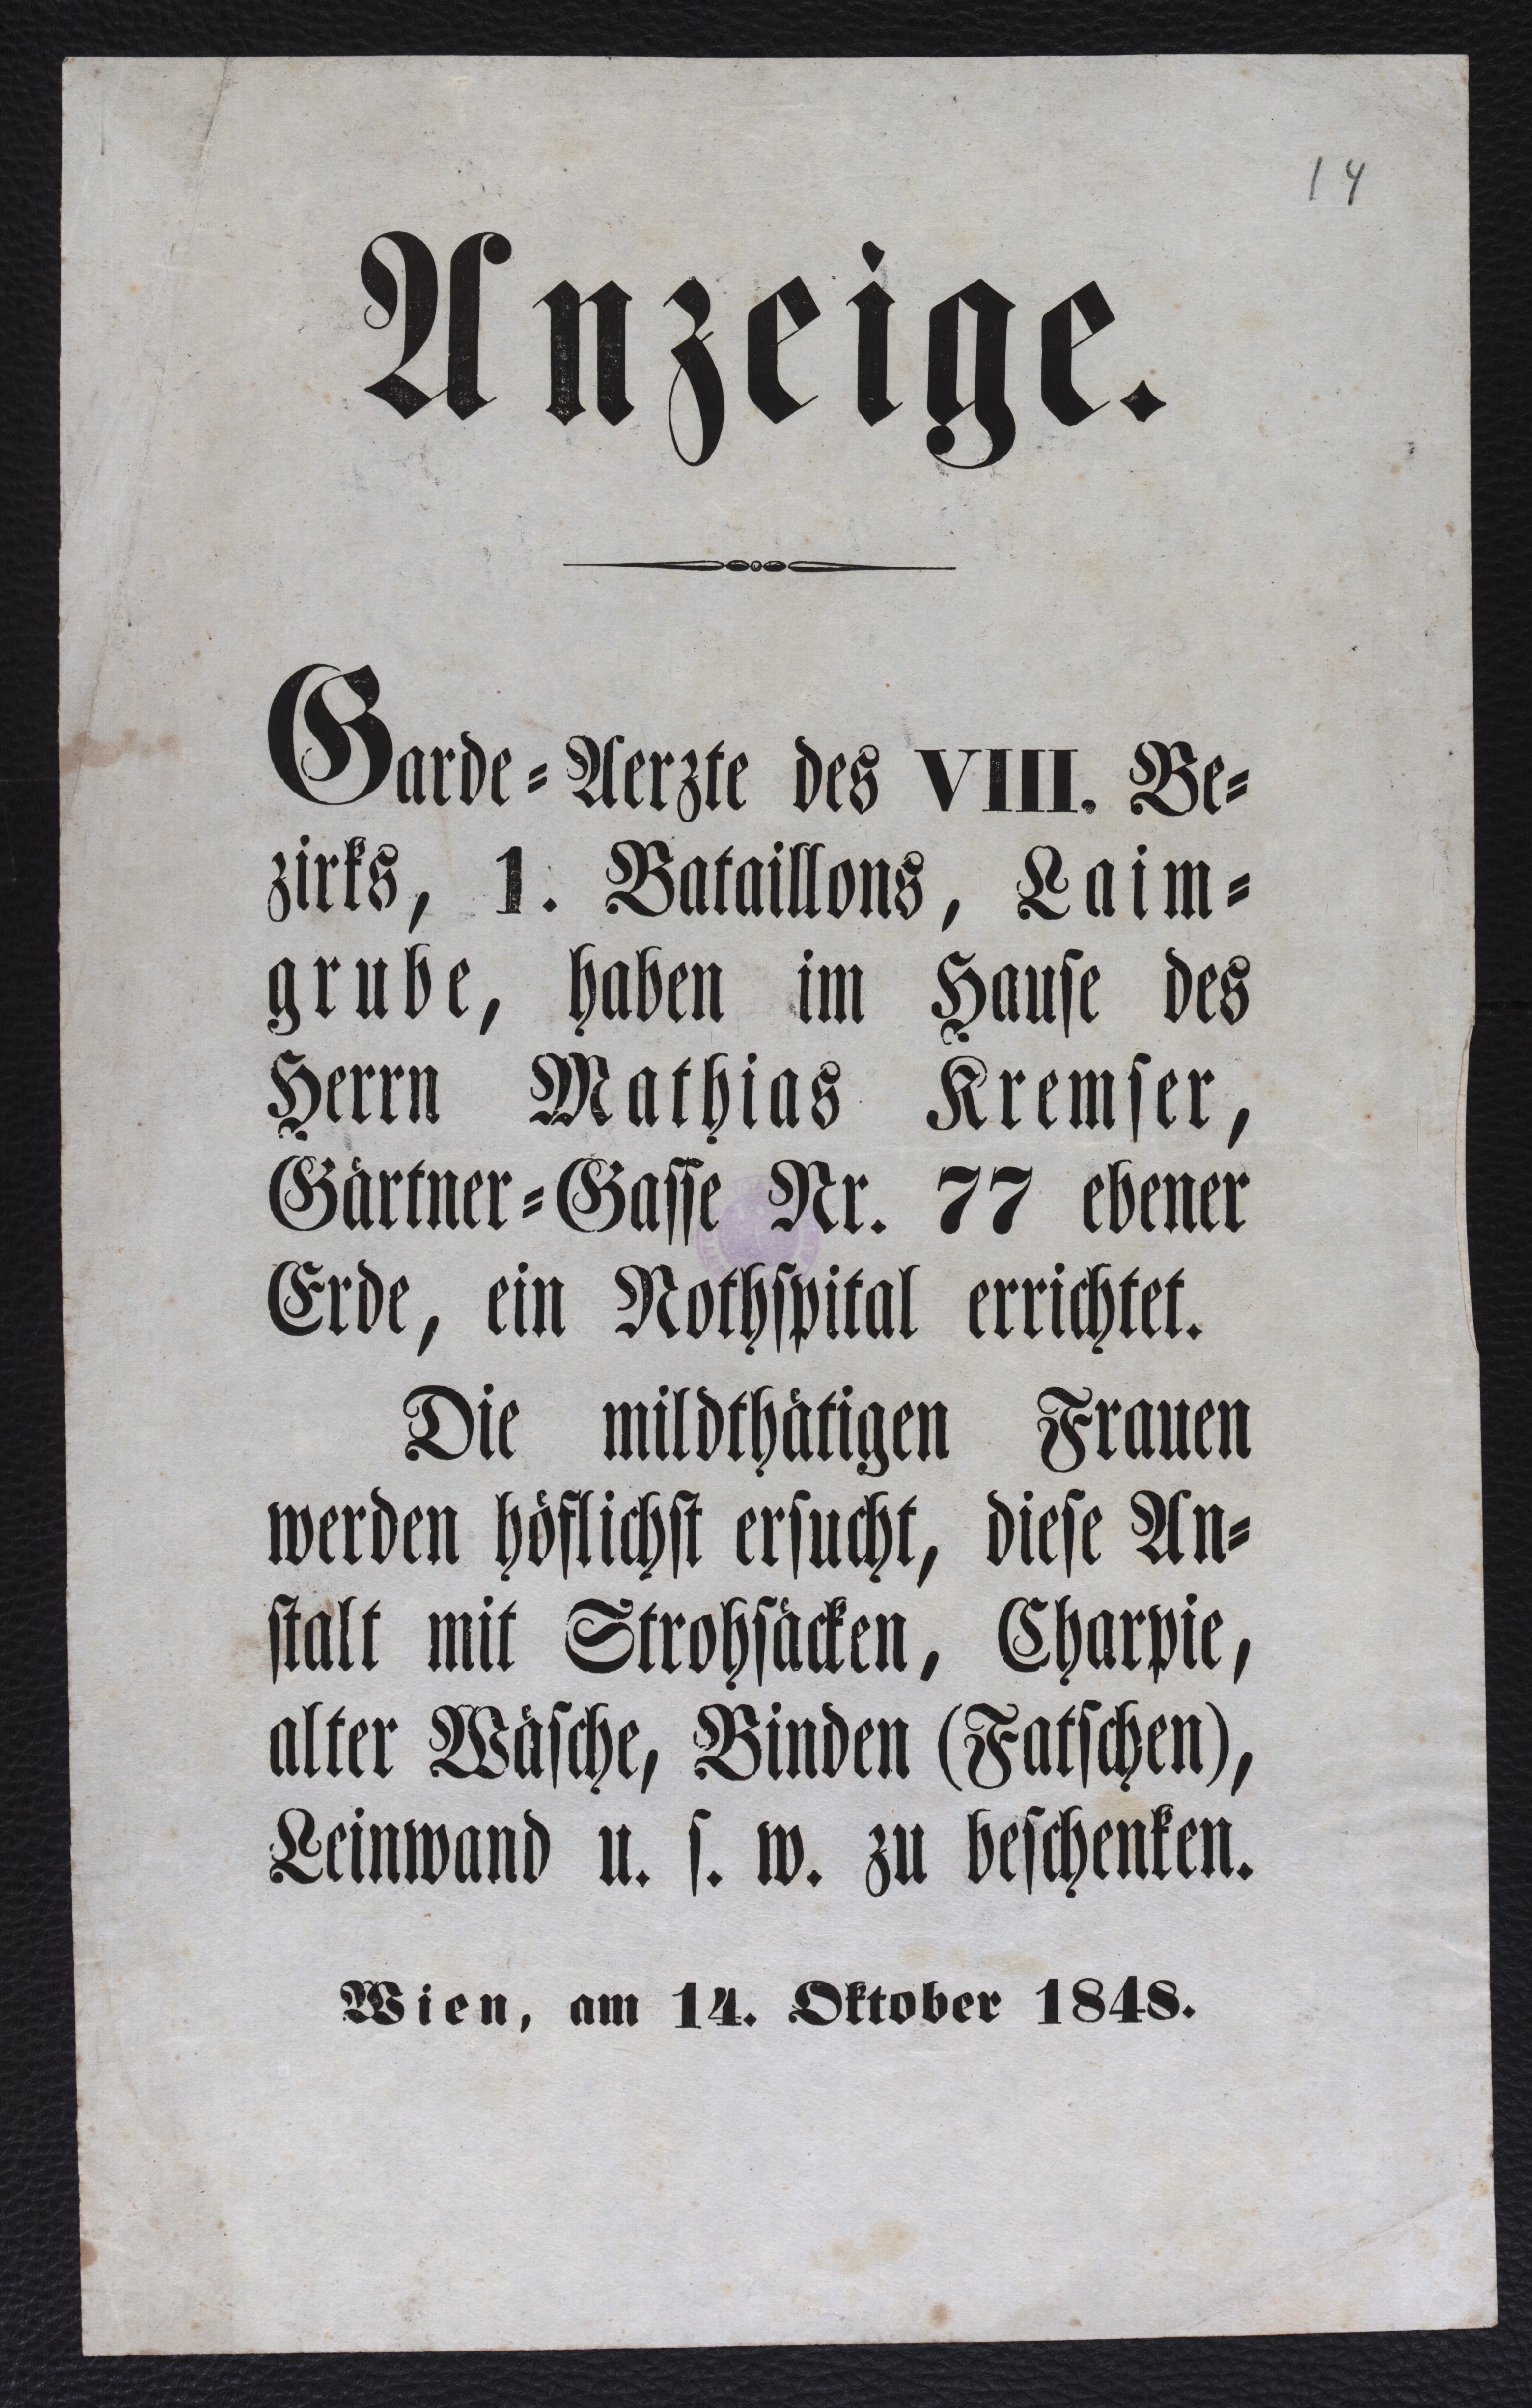 14
Anzeige.
Garde-Aerzte des VIII. Be-
zirks, 1. Bataillons, Laim-
grube, haben im Hause des
Herrn Mathias Kremser,
Gärtner-Gasse Nr. 77 ebener
Erde, ein Nothspital errichtet.
Die mildthätigen Frauen
werden höflichst ersucht, diese An-
stalt mit Strohsäcken, Charpie,
alter Wäsche, Binden (Fatschen),
Leinwand u. s. w. zu beschenken.
Wien, am 14. Oktober 1848.